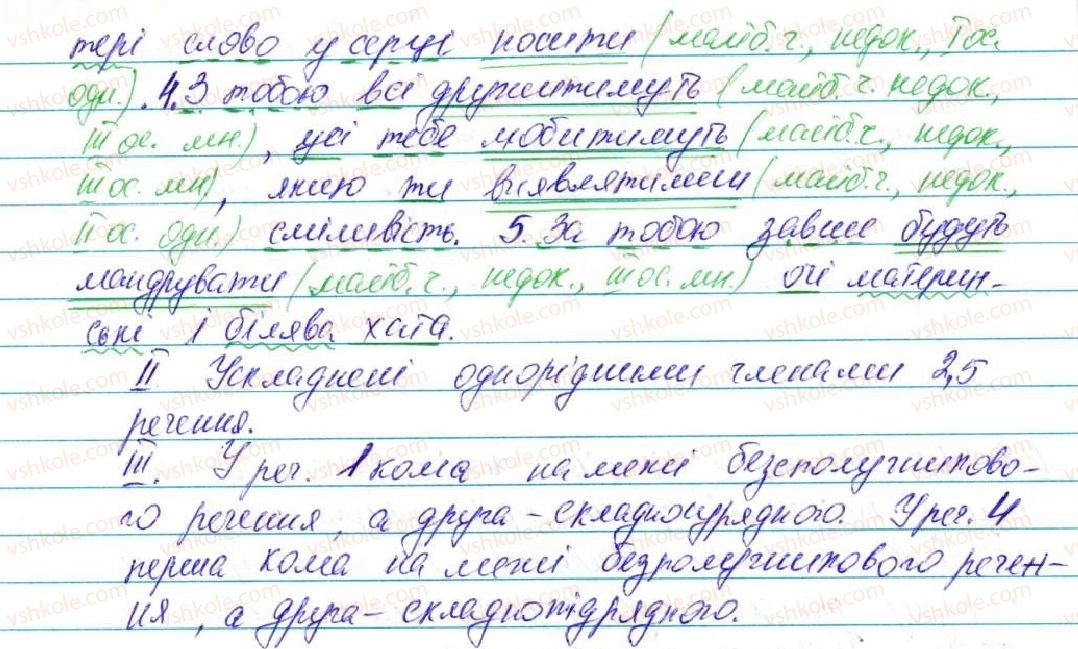 тері слово у серці носити (майб. ч., недок., I ос.
одн.). 4. З тобою всі дружитимуть (майб. ч. недок.,
III ос. мн.), усі тебе любитимуть (майб. ч., недок.,
III ос. мн), якщо ти виявлятимеш (майб. ч., недок.,
II ос. одн.) сміливість. 5. За тобою завше будуть
мандрувати (майб. ч., недок., III ос. мн.) очі материн-
ські і білява хата.
II Ускладнені однорідними членами 2,5
речення.
III. У реч. 1 кома на межі безсполучниково-
го речення, а друга – складносурядного. У реч. 4
перша кома на межі безполучникового речен-
ня, а друга – складнопідрядного.